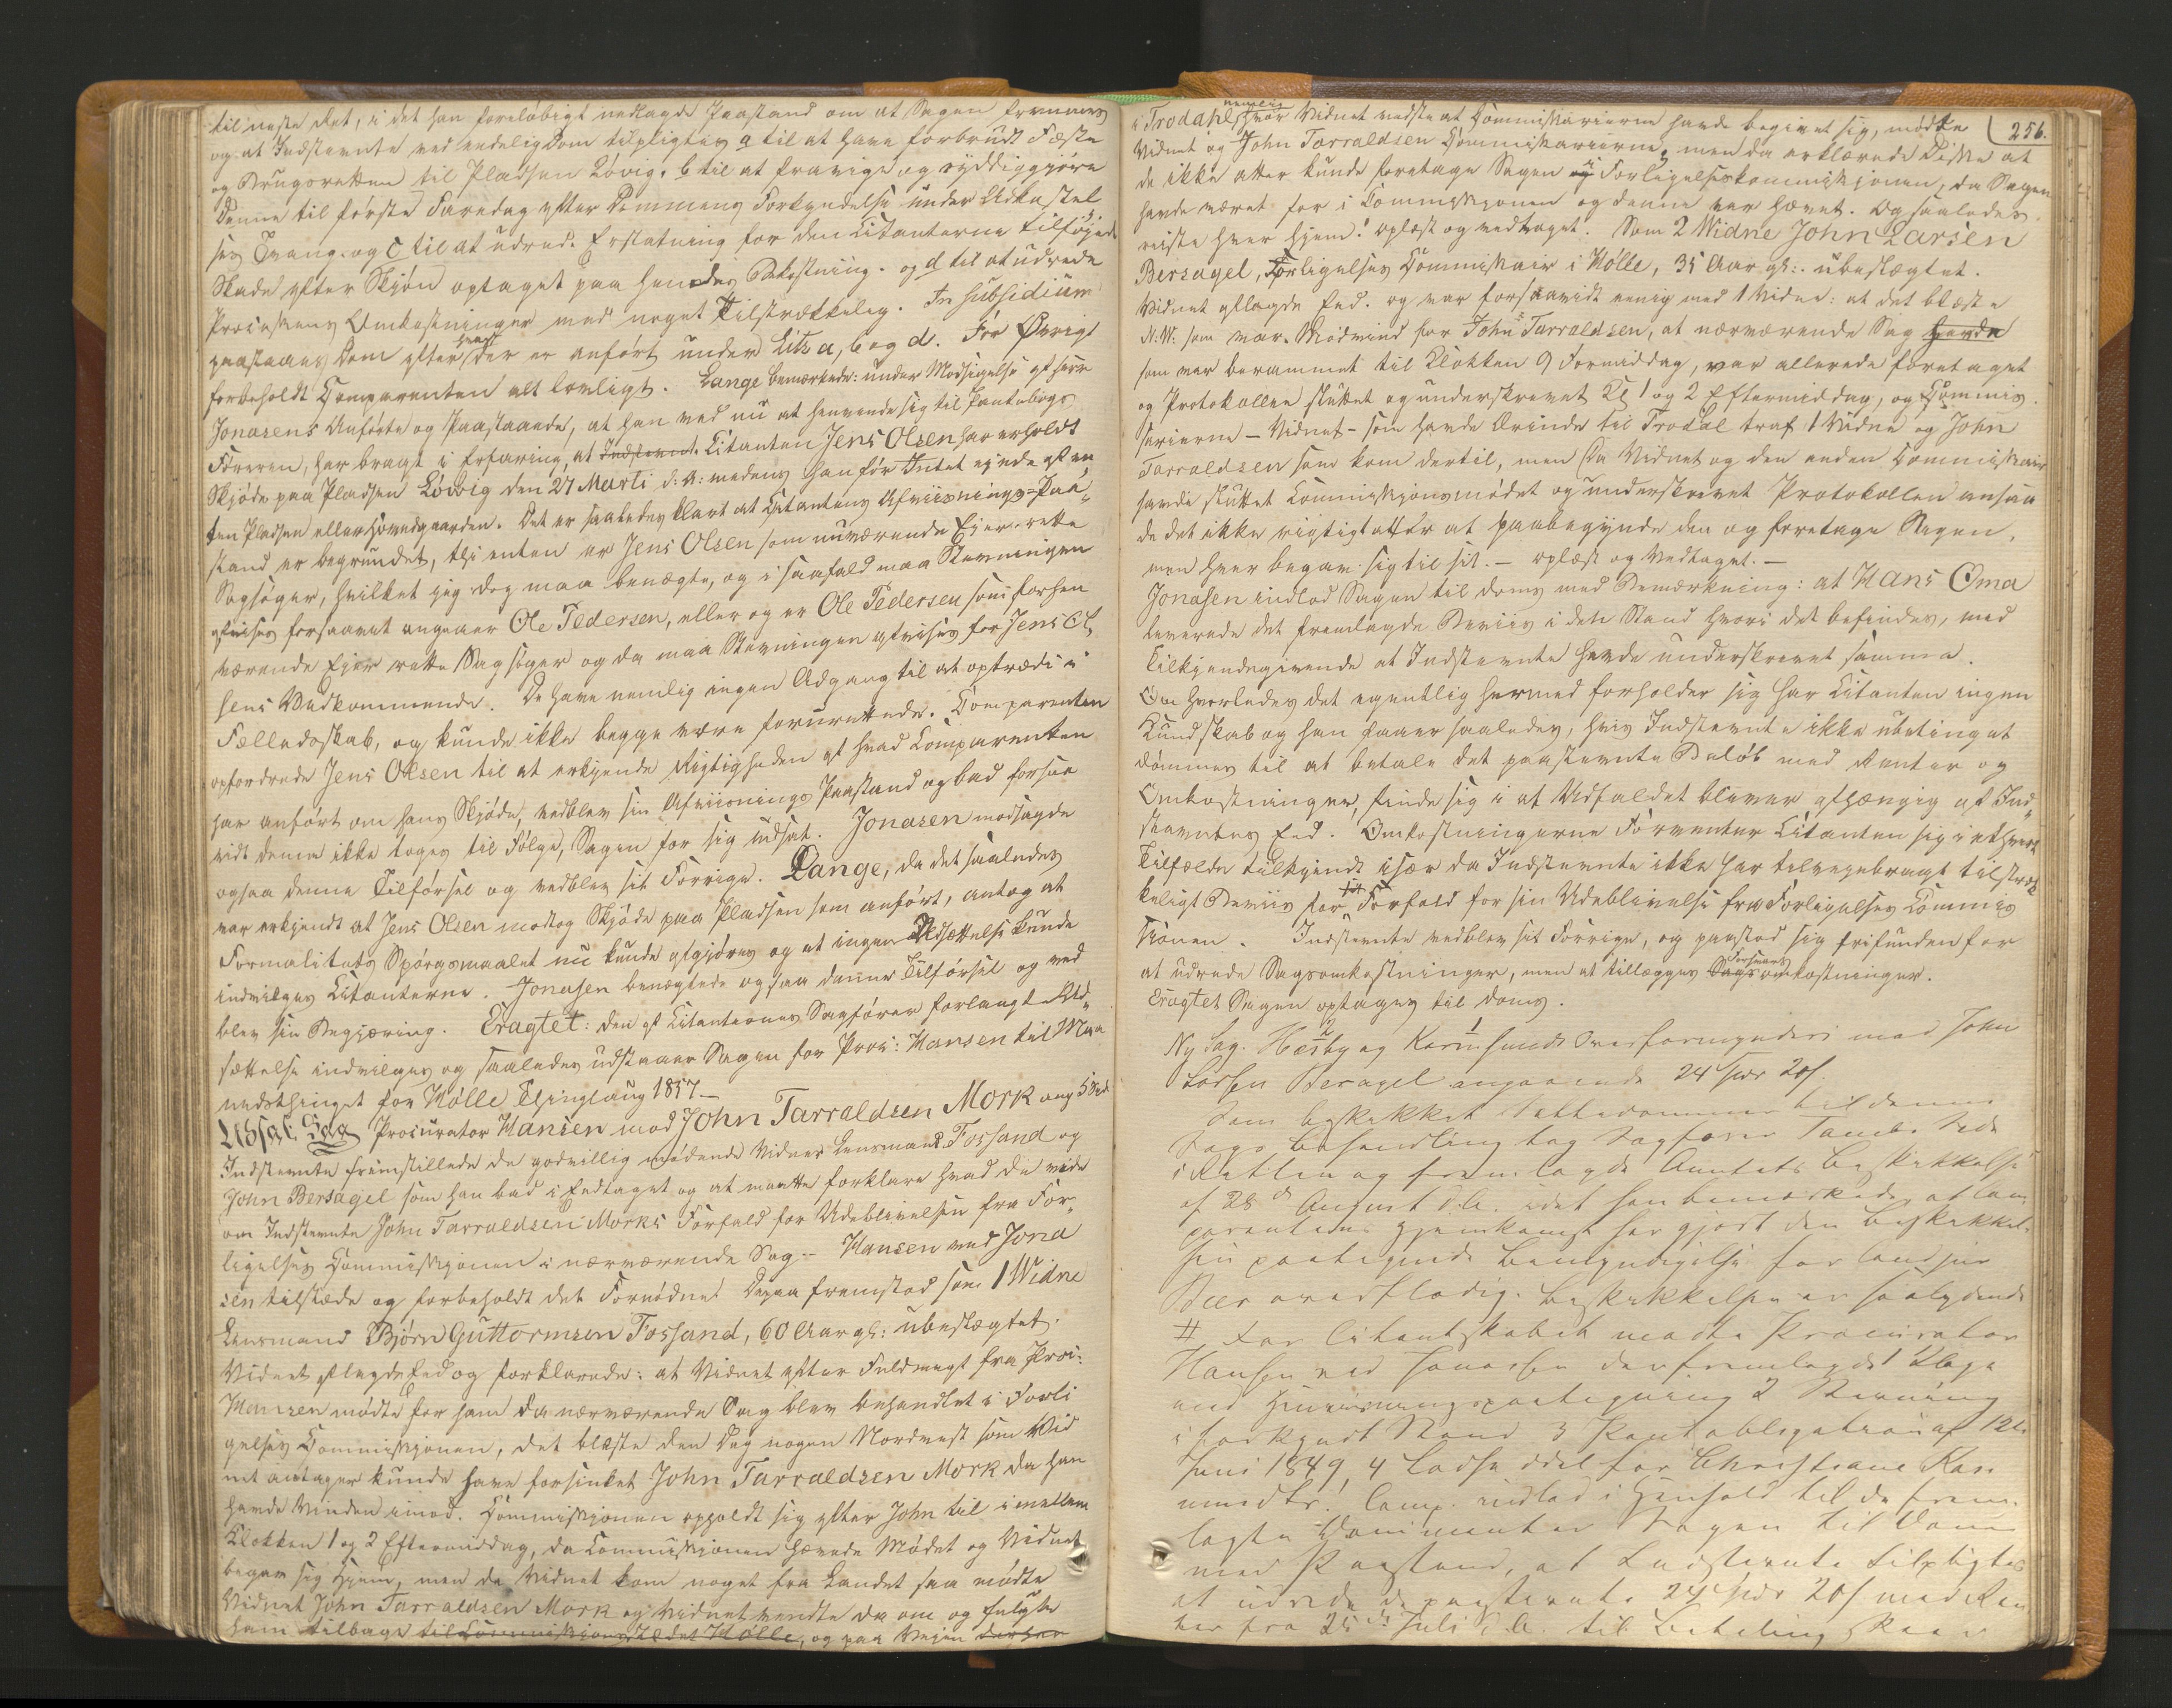 til neste Ret, i det han foreløbigt nedlagde Paastand om at Sagen fremmes
og at Indstevnte ved endelig Dom tilpligtes a til at have forbrudt Fæste
og Brugsretten til Pladsen Løvig. b til at fravige og ryddiggjøre
Denne til første Faredag efter Dommens Forkyndelse under Udkastel
ses Tvang. og c til at udrede Erstatning for den Citanterne tilføjede
Skade efter Skjøn optaget paa hendes Bekostning. og d til at udrede
Processens Omkostninger med noget Tilstrækkelig. In subsidium
paastaaes Dom efter hvad der er anført under Litr a, b og d. For Øvrigt
forbeholdt Comparenten alt lovligt. Lange bemærkede: under Modsigelse af Herr
Jonasens Anførte og Paastaaede, at han ved nu at henvende sig til Pantebogs
Føreren, har bragt i Erfaring, at Indstevnt. Citanten Jens Olsen har erholdt
Skjøde paa Pladsen Løvig den 27 Marti d: A: medens han før Intet ejede af en
ten Pladsen eller Hovedgaarden. Det er saaledes klart at Citantens Afviisnings-Paa
stand er begrundet, thi enten er Jens Olsen som nuværende Ejer rette
Sagsøger, hvilket jeg dog maa benægte, og i saafald maa Stevningen
afvises forsaavidt angaaer Ole Pedersen, eller og er Ole Pedersen som forhen
værende Ejer rette Sagsøger og da maa Stevningen afvises for Jens Ol
sens Vedkommende. De have nemlig ingen Adgang til at optræde i
Fælledsskab, og kunde ikke begge være forurettede. Comparenten
opfordrede Jens Olsen til at erkjende Rigtigheden af hvad Comparenten
har anført om hans Skjøde, vedblev sin Afviisnings Paastand og bad forsaa
vidt denne ikke toges til Følge, Sagen for sig udsat. Jonasen modsagde
ogsaa denne Tilførsel og vedblev sit Forrige. Lange, da det saaledes
var erkjendt at Jens Olsen modtog Skjøde paa Pladsen som anført, antog at
Formalitets Spørgsmaalet nu kunde afgjøres og at ingen Udsættelse kunde
indvilges Citanterne. Jonasen benægtede ogsaa denne Tilførsel og ved
blev sin Begjæring. Eragtet: den af Citanternes Sagfører forlangte Ud
sættelse indvilges og saaledes udstaaer Sagen for Proc: Hansen til Maa
nedsthinget for Holle Thinglaug 1857.—
Udsat Sag Procurator Hansen mod John Tarraldsen Mork ang 5 Spd.
Indstevnte fremstillede de godvillig mødende Vidner Lensmand Fossand og
John Bersagel som han bad i Eedtaget og at maatte forklare hvad de vide
om Indstevnte John Tarraldsen Morks Forfald for Udeblivelsen fra For
ligelses Commissionen i nærværende Sag.- Hansen ved Jona
sen tilstæde og forbeholdt det Fornødne! Derpaa fremstod som 1 Widne
Lensmand Bjørn Guttormsen Fossand, 60 Aar gl: ubeslægtet.
Vidnet aflagde Eed og forklarede: at Vidnet efter Fuldmagt fra Proc:
Hansen mødte for ham da nærværende Sag blev behandlet i Forli
gelses Commissionen, det blæste den Dag nogen Nordvest som Vid
net antager kunde have forsinket John Tarraldsen Mork da han
havde Vinden imod. Commissionen oppholdt sig efter John til imellem
Klokken 1 og 2 Eftermiddag, da Commissionen hævede Mødet og Vidnet
begav sig Hjem, men da Vidnet kom noget fra Landet saa mødte
Vidnet John Tarraldsen Mork og Vidnet vendte da om og fulgte
ham tilbage til Commissionsstædet Holle, og paa Vejen derhen
256.
i Trodahl, hvor nemlig Vidnet vidste at Commissairerne havde begivet sig, mødte
Vidnet og John Tarraldsen Commissairerne, men da erklærede Disse at
de ikke atter kunde foretage Sagen i Forligelseskommissionen, da Sagen
havde været for i Commissionen og denne var hævet. Og saaledes
reiste hver hjem! oplæst og vedtaget. Som 2 Widne John Larsen
Bersagel, Forligelses Commissair i Holle, 35 Aar gl:. ubeslægtet.
Vidnet aflagde Eed. og var forsaavidt eenig med 1 Vidne: at det blæste
N.W. som var Modvind for John Tarraldsen, at nærværende Sag havde
som var berammet til Klokken 9 Formiddag, var allerede foretaget
og Protokollen sluttet og underskrevet Kl 1 og 2 Eftermiddag, og Commis
sairerne – Vidnet – som havde Ærinde til Trodal traf 1 Vidne og John
Tarraldsen som kom dertil, men da Vidnet og den anden Commissair
havde sluttet Commissionsmødet og underskrevet Protokollen ansaa
de det ikke rigtigt atter at paabegynde den og foretage Sagen,
men hver begav sig til sit. – oplæst og vedtaget. –
Jonasen indlod Sagen til doms med Bemærkning: at Hans Oma
leverede det fremlagde Beviis i den Stand hvori det befindes, med
Tilkjendegivende at Indstevnte havde underskrevet samme.
Om hvorledes det egentlig hermed forholder sig har Citanten ingen
Kundskab og han faaer saaledes, hvis Indstevnte ikke ubetinget
dømmes til at betale det paastevnte Beløb med Renter og
Omkostninger, finde sig i at Udfaldet bliver afhængig af Ind
stevntes Eed. Omkostningerne Forventer Citanten sig i ethvert
Tilfælde tilkjendt især da Indstevnte ikke har tilvejebragt tilstræk
keligt Beviis for Forfald for sin Udeblivelse fra Forligelses Commis
sionen. Indstevnte vedblev sit Forrige, og paastod sig frifunden for
at udrede Sagsomkostninger, men at tillægges Forsvars Sags omkostninger.
Eragtet Sagen optages til doms.
Ny Sag. Hesby og Karmsunds Overformynderi mod John
Larsen Bersagel angaaende 24 Spdr 20 s.
Som beskikket Sættedommer til denne
Sags Behandling tog Sagfører Sæde
i Retten og fremlagde Amtets Beskikkelse
af 28 d August d.A. idet han bemærkede, at Com
parentens Hjemkomst har gjort den Beskikkel
sen paategnede Bemyndigelse for
overflødig. Beskikkelsen er saalydende
# For Citantskabet mødte Procurator
Hansen ved Jonassen der fremlagde 1 Klage
med Henvisningspaategning 2 Stevning
i forkyndt Stand 3 Pantobligation af 12te
Juni 1849, 4 for Christiane
Comp. indlod i Henhold til de frem
lagte Documenter Sagen til Doms
med Paastand, at Indstevnte tilpligtes
at udrede de paastevnte 24 Spdr 20 s med Ren
ter fra 25de Juli d.A. til Betaling skeer